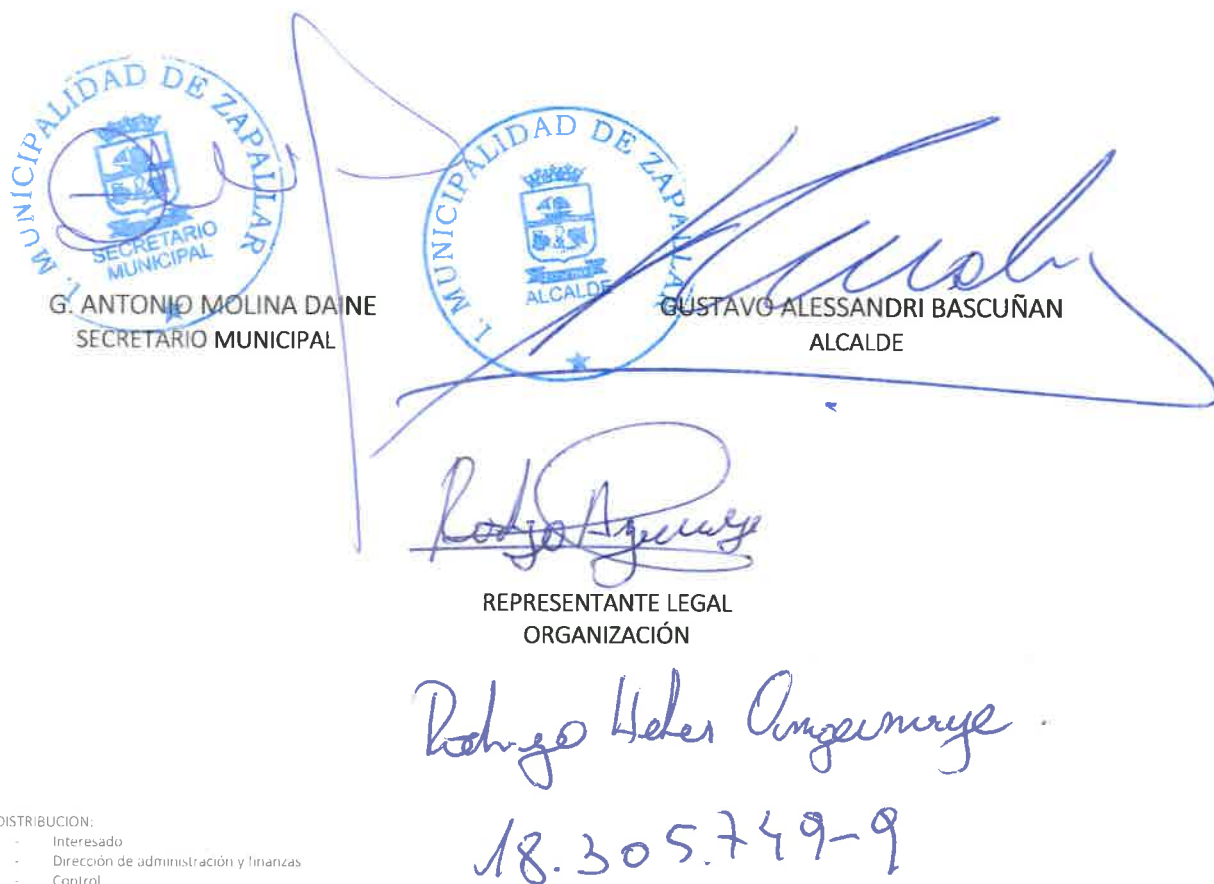 I. MUNICIPALIDAD DE ZAPALLAR
SECRETARIO
MUNICIPAL
G. ANTONIO MOLINA DAINE
SECRETARIO MUNICIPAL
I. MUNICIPALIDAD DE ZAPALLAR
ALCALDE
GUSTAVO ALESSANDRI BASCUÑAN
ALCALDE
REPRESENTANTE LEGAL
ORGANIZACIÓN
Rodrigo
18.305.749-9
DISTRIBUCION:
- Interesado
- Dirección de administración y finanzas
- Control